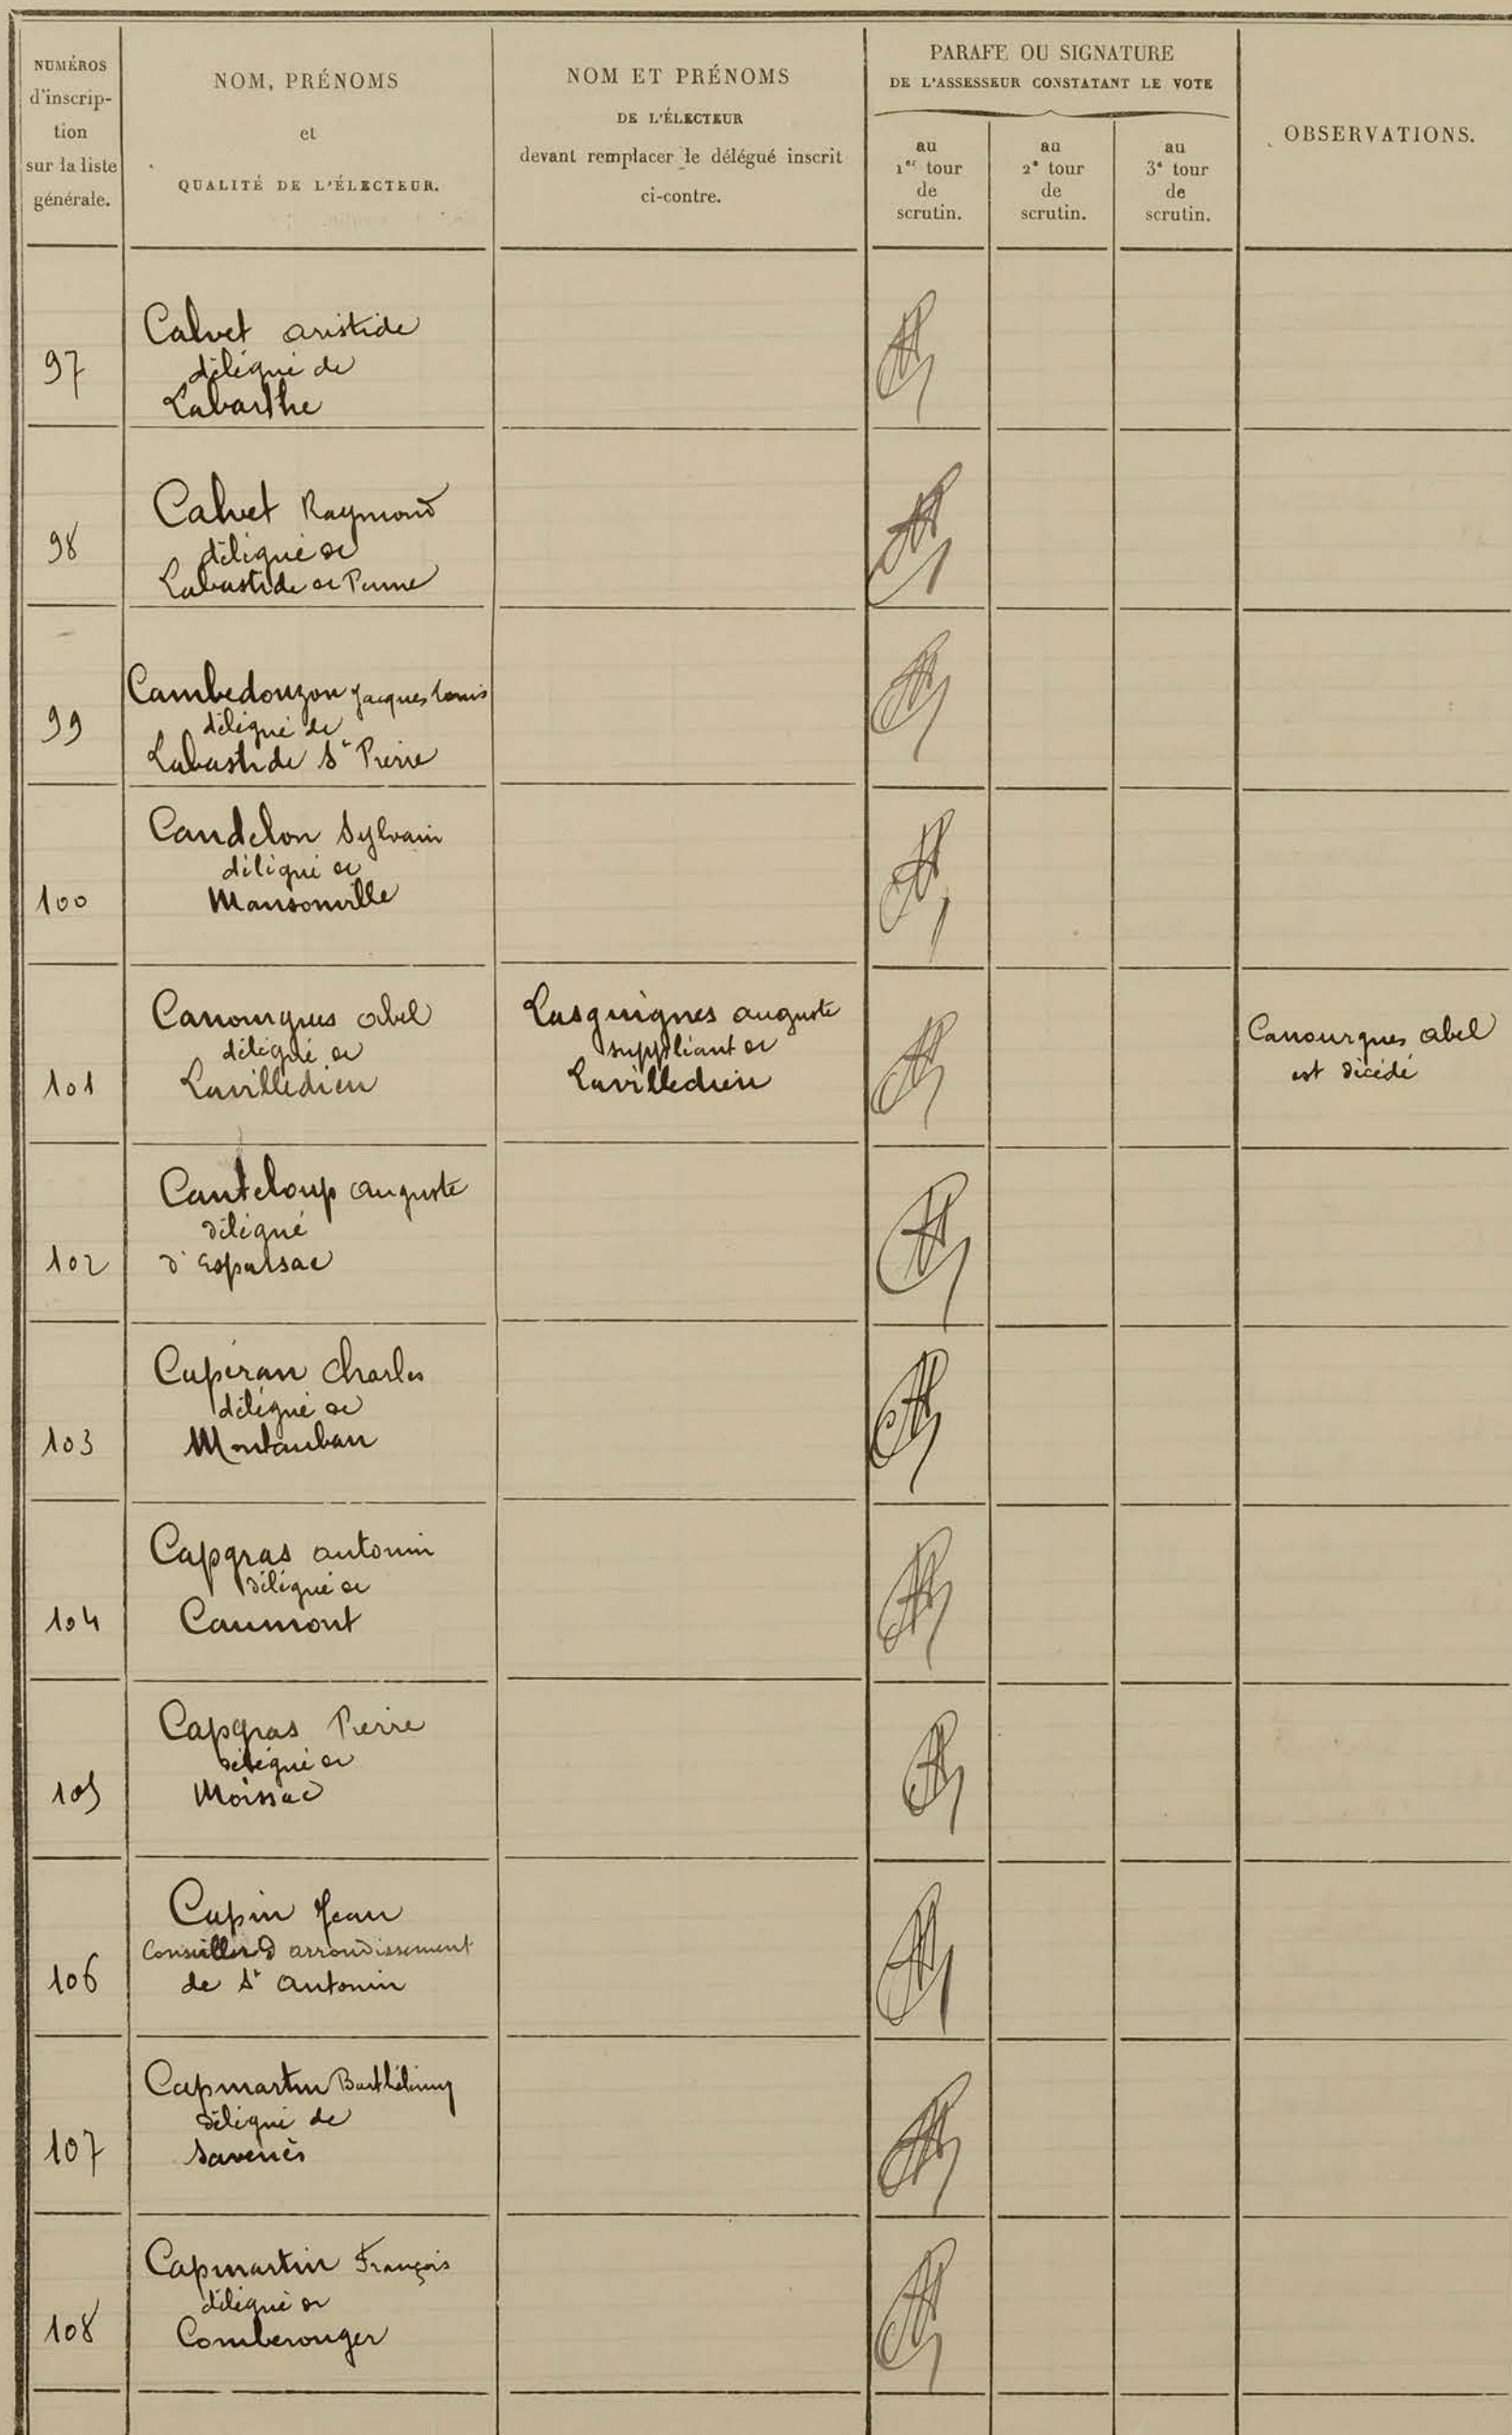 NUMÉROS
d'inscrip-
tion
sur la liste
générale.
NOM, PRÉNOMS
et
QUALITÉ DE L'ÉLECTEUR.
NOM ET PRÉNOMS
DE L'ÉLECTEUR
devant remplacer le délégué inscrit
ci-contre.
PARAFE OU SIGNATURE
DE L'ASSESSEUR CONSTATANT LE VOTE
au
1er tour
de
scrutin.
au
2e tour
de
scrutin.
au
3e tour
de
scrutin.
OBSERVATIONS.
97
Calvet Aristide
délégué de
Labarthe
98
Calvet Raymond
délégué de
Labastide de Penne
99
Cambedouzon Jacques Louis
délégué de
Labastide St Pierre
100
Candelon Sylvain
délégué de
Mansonville
101
Canourgues Abel
délégué de
Lavilledieu
Lasguignes Auguste
suppléant de
Lavilledieu
Canourgues Abel
est décédé
102
Canteloup Auguste
délégué
d'Esparsac
103
Capéran Charles
délégué de
Montauban
104
Capgras Antonin
délégué de
Caumont
105
Capgras Pierre
délégué de
Moissac
106
Capin Jean
Conseiller d'arrondissement
de St Antonin
107
Capmartin Barthélemy
délégué de
Savenès
108
Capmartin François
délégué de
Comberouger